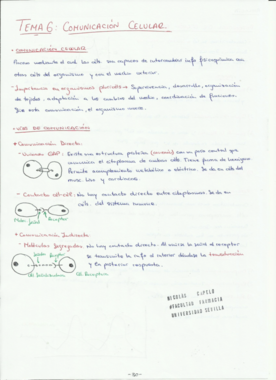 TEMA 6: COMUNICACIÓN CELULAR.
• COMUNICACIÓN CELULAR
Proceso mediante el cual las céls son capaces de intercambiar info fisicoquímica con
otras céls del organismo y con el medio exterior.
- Importancia en organismos pluricels → Supervivencia, desarrollo, organización
de tejidos, adaptación a los cambios del medio, coordinación de funciones
Sin esta comunicación, el organismo muere.
• VÍAS DE COMUNICACIÓN
• Comunicación Directa
- Uniones GAP: Existe una estructura proteica (conexón) con un poro central que
comunica el citoplasma de ambas céls. Tiene forma de
Permite acoplamiento metabólico y eléctrico. Se da en céls del
musc. liso y cardíacas.
- Contacto cél-cél: sin hay contacto directo entre citoplasmas. Se da en
céls. del sistema inmune.
Molec Señal Receptor
• Comunicación Indirecta
- Moléculas Segregadas: sin hay contacto directo. Al unirse la señal al receptor
se transmite la info al interior dándose la transducción
y la posterior respuesta.
Señal Recept
Cél Señalizadora Cél Receptora
NICOLAS CAPELO
FACULTAD FARMACIA
UNIVERSIDAD SEVILLA
-50-